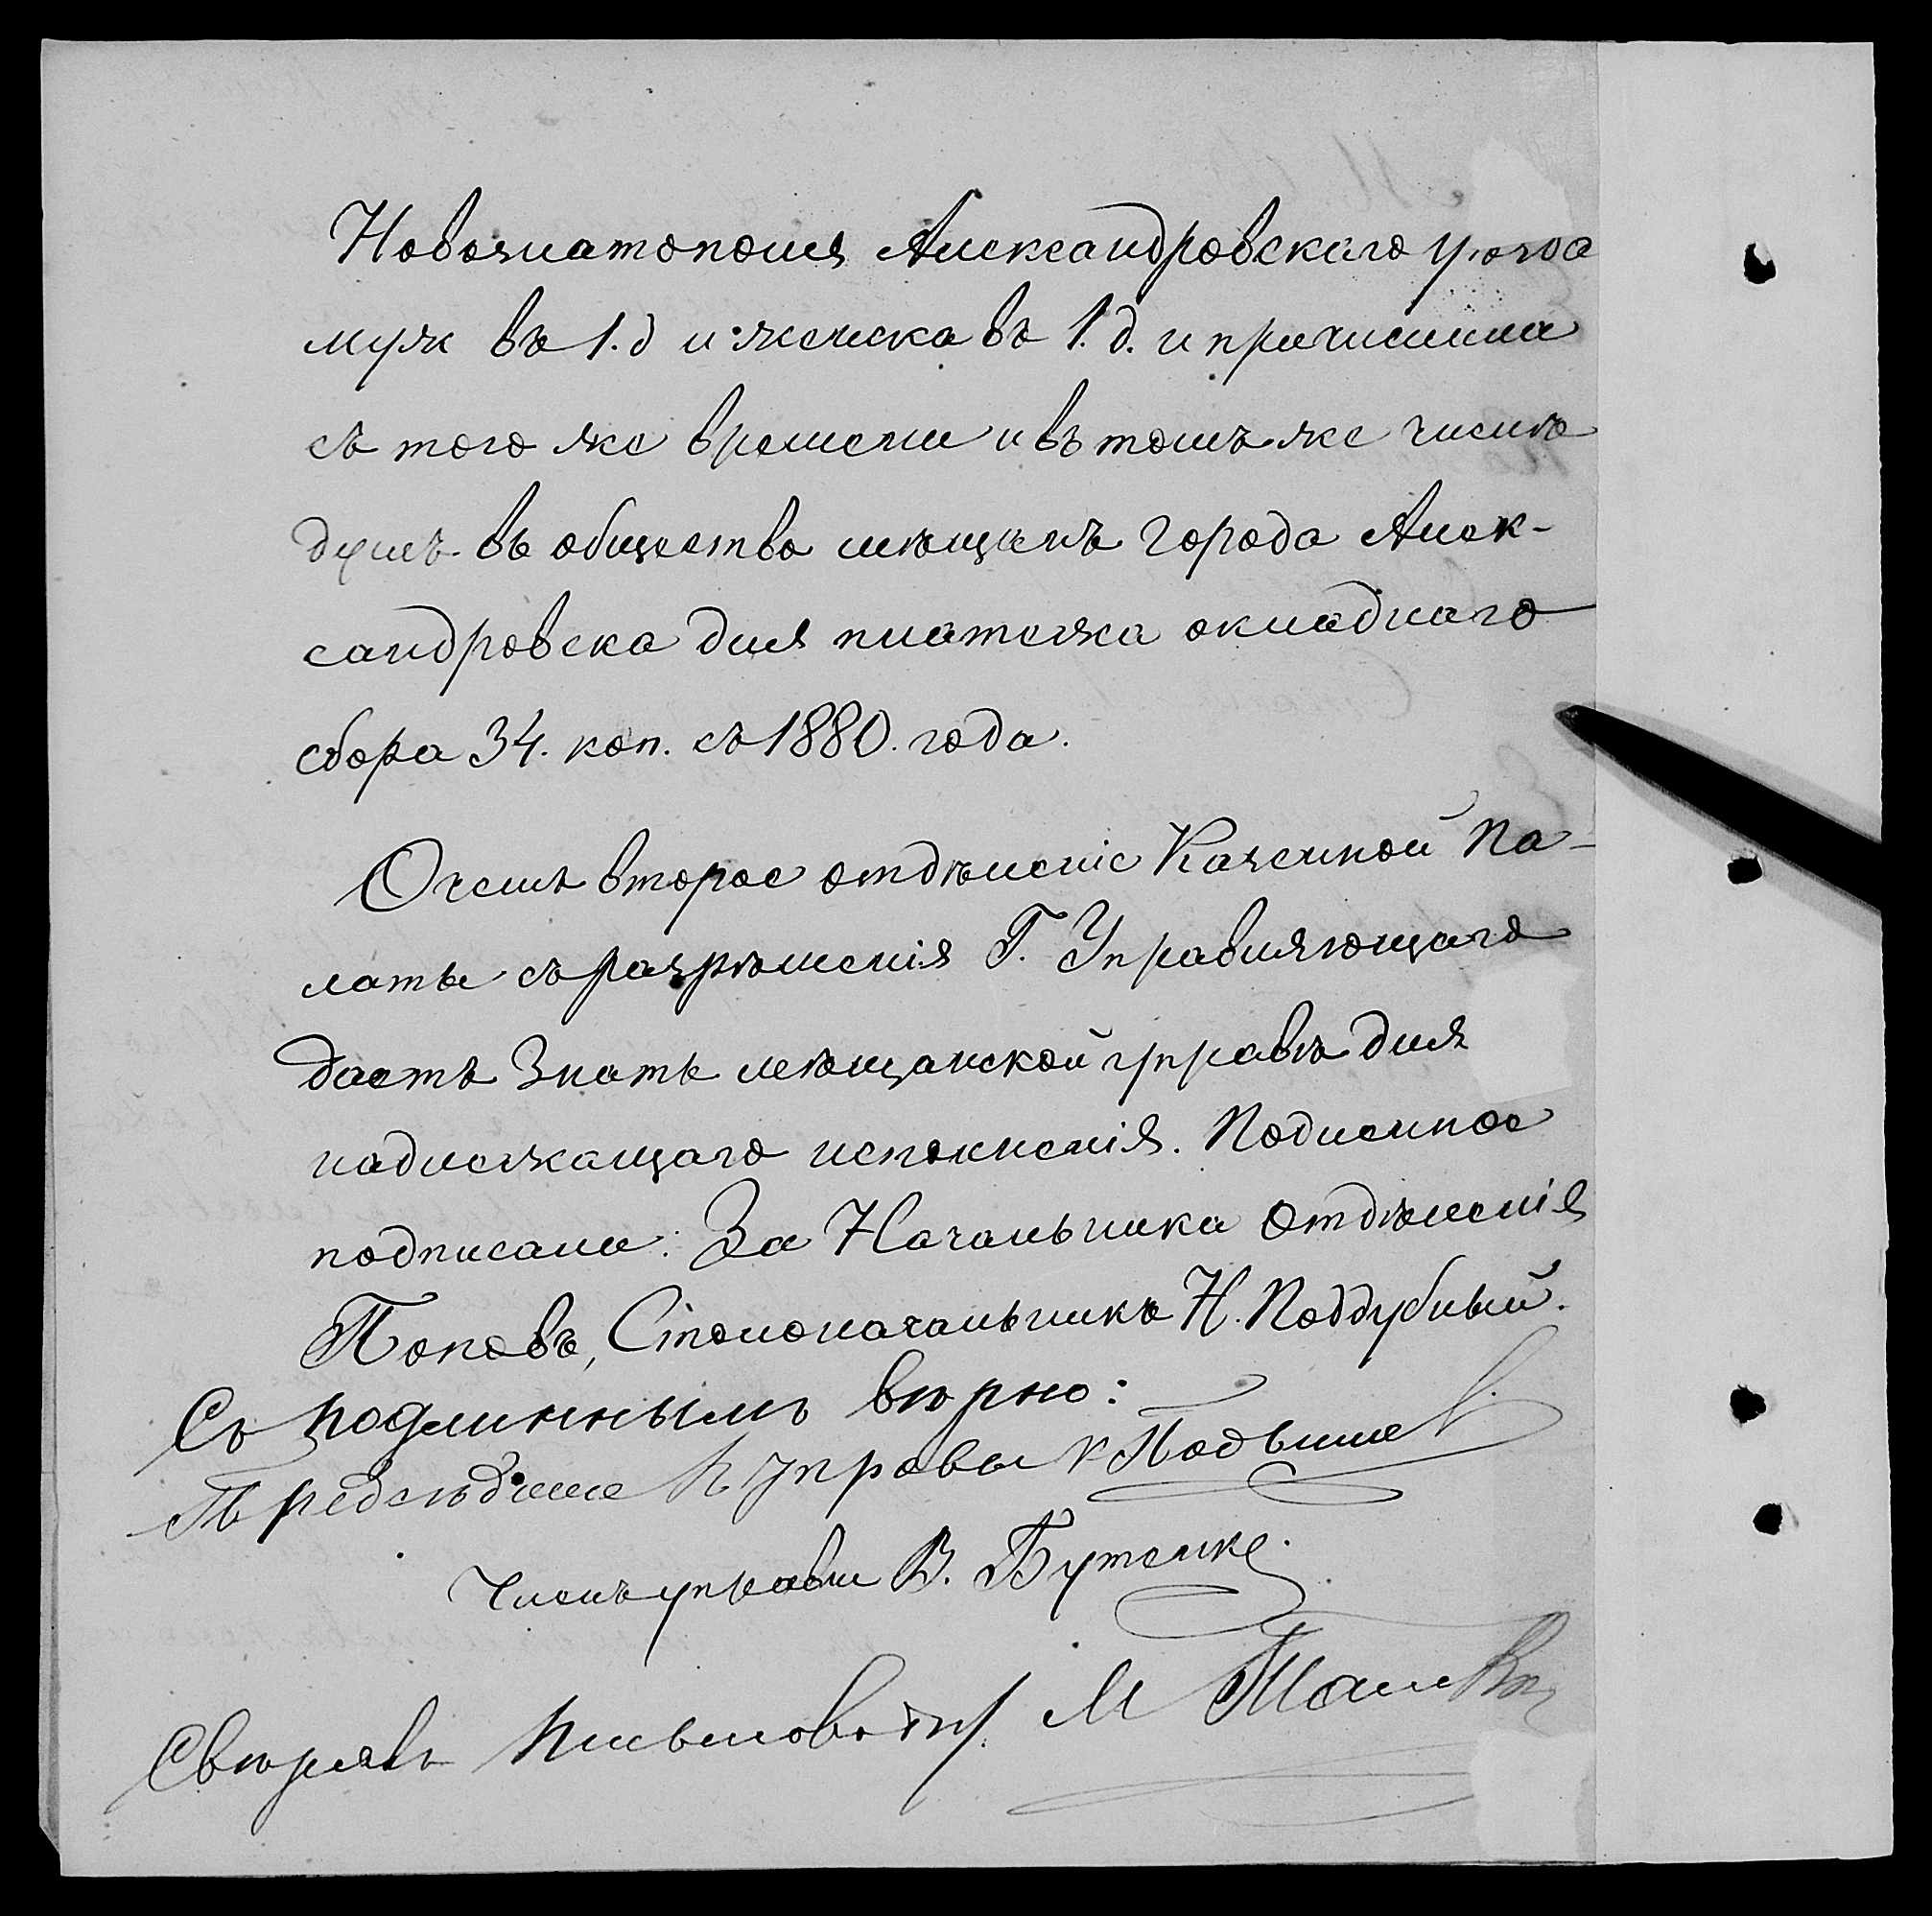 Новозлатополя Александровскаго уѣзда
муж въ 1. д и женска въ 1. д. и причислила
съ того же времени и въ томъ же числѣ
душъ въ общество мѣщанъ города Алек-
сандровска для платежа окладнаго
сбора 34. коп. съ 1880. года.
О чемъ второе отдѣленіе Казенной Па-
латы съ разрѣшенія Г. Управляющаго
даетъ знать мѣщанской управѣ для
надлежащаго исполненія. Подленное
подписали: За Начальника Отдѣленія
Поповъ, Столоначальникъ Н. Поддубный.
Съ подлиннымъ вѣрно:
Предсѣдатель управы
Членъ управы В. Бутенко.
Свѣрялъ письмовод. М